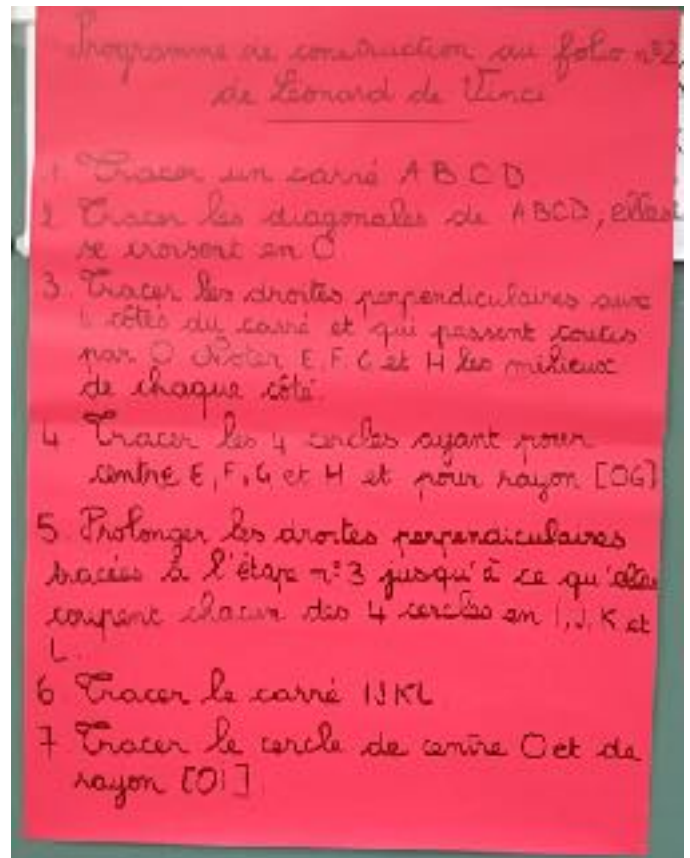 Programme de construction au folio n°2
de Léonard de Vinci
1. Tracer un carré ABCD
2 Tracer les diagonales de ABCD, elles
se croisent en O
3. Tracer les droites perpendiculaires aux
côtés du carré et qui passent toutes
par O Noter E, F, G et H les milieux
de chaque côté.
4 Tracer les 4 cercles ayant pour
centre E, F, G et H et pour rayon [OG]
5. Prolonger les droites perpendiculaires
tracées à l'étape n°3 jusqu'à ce qu'elles
coupent chacun des 4 cercles en I, J, K et
L.
6 Tracer le carré IJKL
7 Tracer le cercle de centre O et de
rayon [OI]